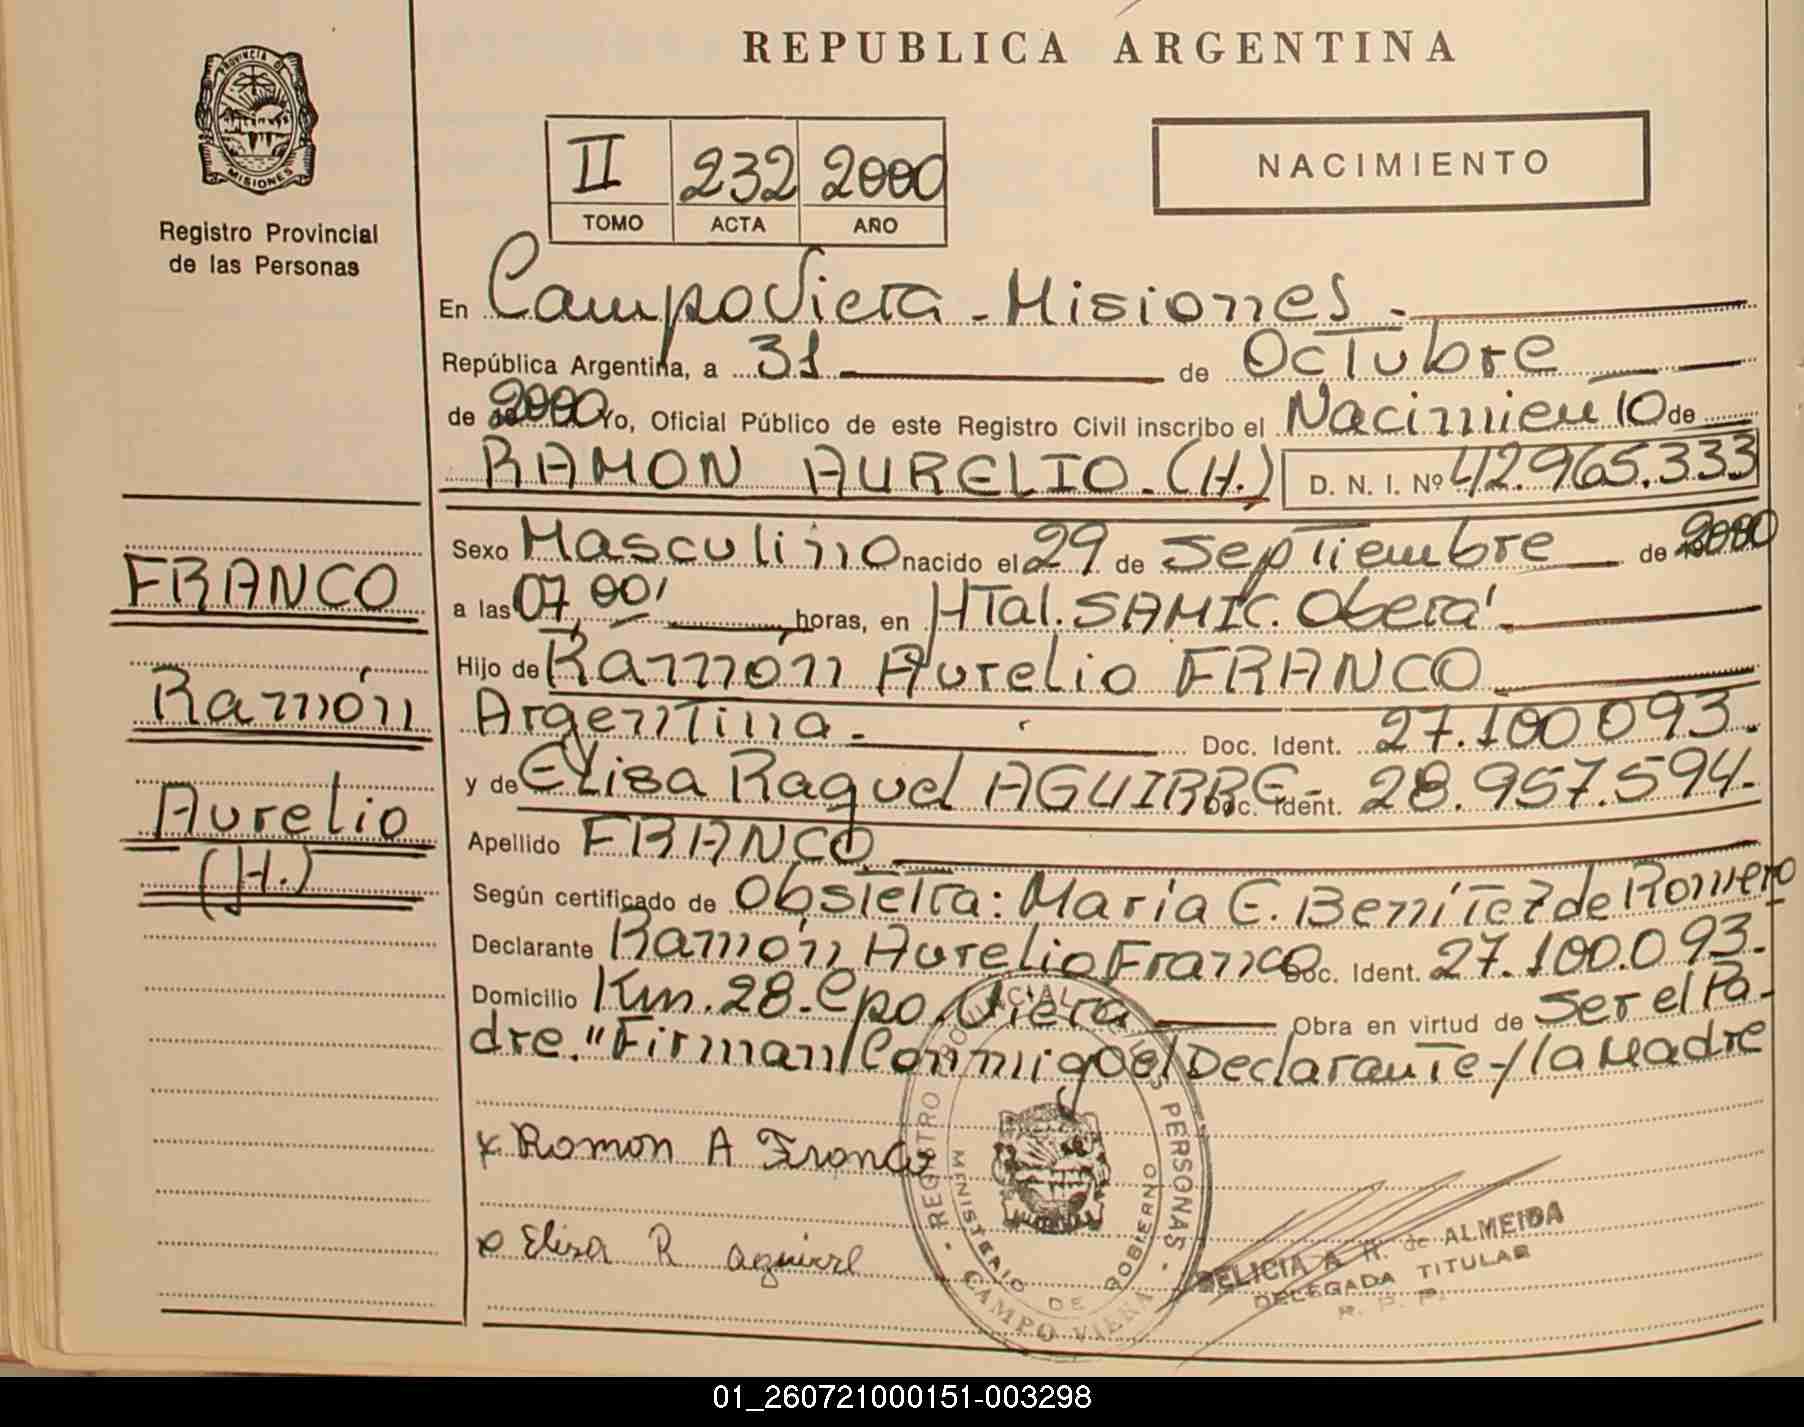 REPUBLICA ARGENTINA
PROVINCIA DE
MISIONES
Registro Provincial
de las Personas
II 232 2000
TOMO ACTA AÑO
NACIMIENTO
En Campo Viera - Misiones -
República Argentina, a 31 de Octubre
de 2000 Yo, Oficial Público de este Registro Civil inscribo el Nacimiento de
RAMON AURELIO. (H.) D. N. I. Nº 42.965.333
Sexo Masculino nacido el 29 de Septiembre de 2000
a las 07,00' horas, en HTal. SAMIC. Oberá.
Hijo de Ramón Aurelio FRANCO
Argentina. Doc. Ident. 27.100093.
y de Elisa Raquel AGUIRRE- Doc. Ident. 28.957.594.
Apellido FRANCO
Según certificado de Obstetra: María E. Benítez de Romero
Declarante Ramón Aurelio Franco Doc. Ident. 27.100.093.-
Domicilio Km. 28. Cpo. Viera Obra en virtud de Ser el Pa-
dre. "Firman Conmigo el Declarante y la Madre
x Ramon A Franco
x Elisa R aguirre
FRANCO
Ramón
Aurelio
(H.)
REGISTRO PROVINCIAL DE LAS PERSONAS
MINISTERIO DE GOBIERNO
CAMPO VIERA
DELICIA A R. de ALMEIDA
DELEGADA TITULAR
R. P. P.
01_260721000151-003298